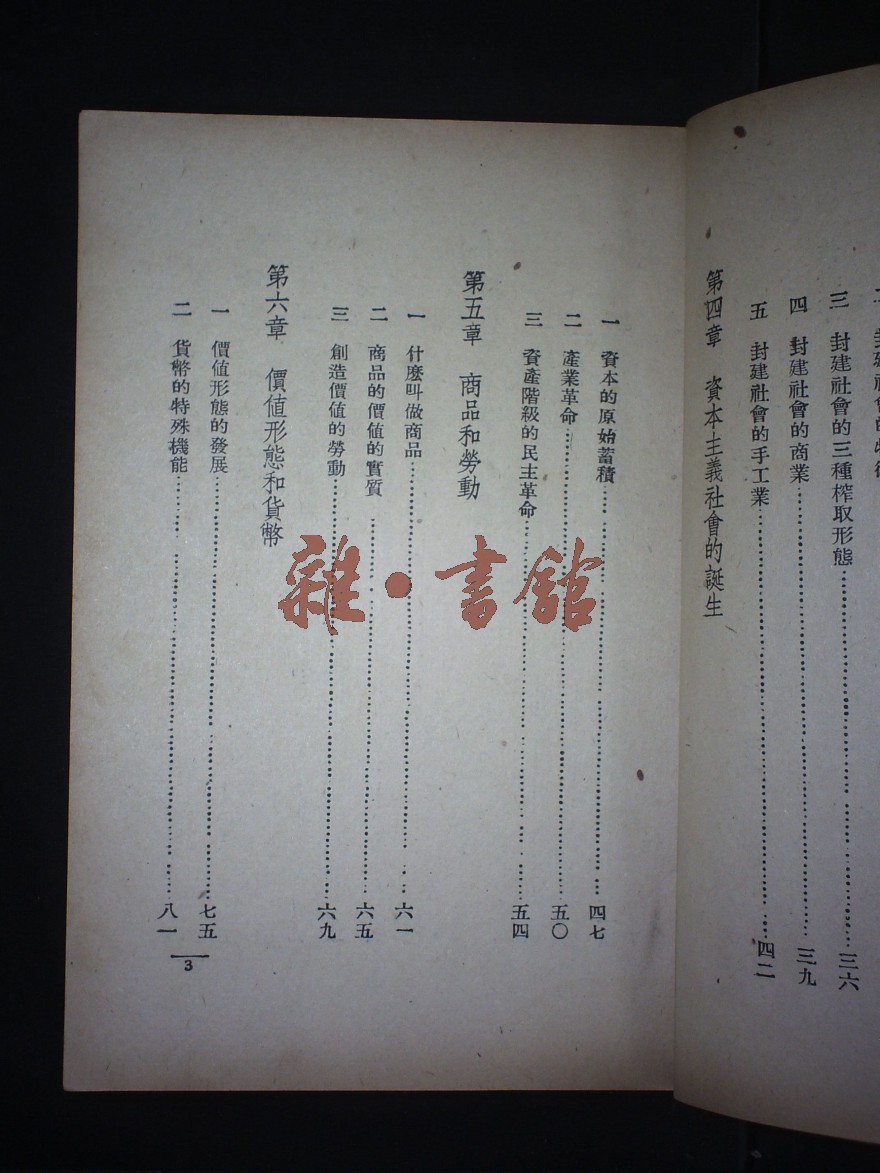 三 封建社會的三種榨取形態……三六
四 封建社會的商業……三九
五 封建社會的手工業……四二
第四章 資本主義社會的誕生
一 資本的原始蓄積……四七
二 產業革命……五〇
三 資產階級的民主革命……五四
第五章 商品和勞動
一 什麼叫做商品……六一
二 商品的價值的實質……六五
三 創造價值的勞動……六九
第六章 價值形態和貨幣
一 價值形態的發展……七五
二 貨幣的特殊機能……八一
3
雜·書館